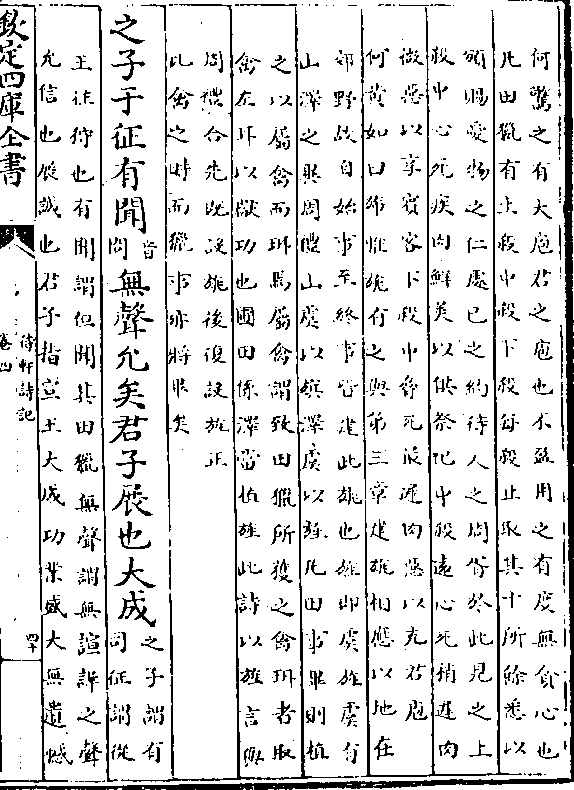 何驚之有大庖君之庖也不盈用之有度無貪心也
凡田獵有上殺中殺下殺每殺止取其十所餘悉以
頒賜愛物之仁處已之約待人之周皆於此見之上
殺中心死疾肉鮮美以供祭祀中殺遠心死稍遲肉
微惡以享賓客下殺中脅死最遲肉惡以充君庖
何黃如曰繹惟旄有之與第三章建旄相應以地在
郊野故自始事至終事皆建此旄也旌即虞旌虞有
山澤之異周禮山虞以旗澤虞以旌凡田事畢則植
之以屬禽而珥焉屬禽謂致田獵所獲之禽珥者取
禽左耳以獻功也圃田係澤當植旌此詩以旌言與
周禮合先既設旄後復設旌正
此禽之時而獵事亦將畢矣
之子于征有聞音問無聲允矣君子展也大成之子謂有司征謂從
王往狩也有聞謂但聞其田獵無聲謂無諠譁之聲
允信也展誠也君子指宣王大成功業盛大無遺憾
欽定四庫全書
待軒詩記
卷四
四十